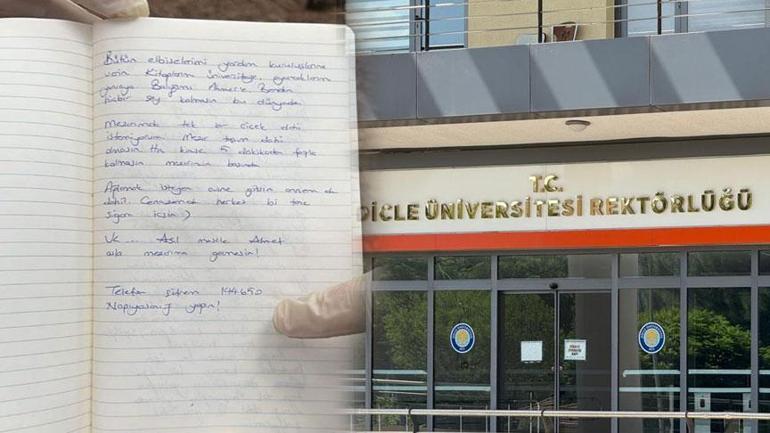 Bütün elbiselerimi yardım kuruluşlarına
verin Kitaplarım üniversiteye, oyuncaklarım
yuvaya Balyamı Ahmet'e Benden
hiçbir şey kalmasın bu dünyada
Mezarımda tek bir çiçek dahi
istemiyorum Mezar taşım dahi
olmasın Hiç kimse 5 dakikadan fazla
kalmasın mezarımın başında
Ağlamak isteyen evine gitsin annem de
dahil. Cenazemde herkes bi tane
sigara içsin :)
Ve ... Asıl mesele Ahmet
asla mezarıma gelmesin!
Telefon şifrem 144650
Napıyosanız yapın!
T.C.
DİCLE ÜNİVERSİTESİ REKTÖRLÜĞÜ